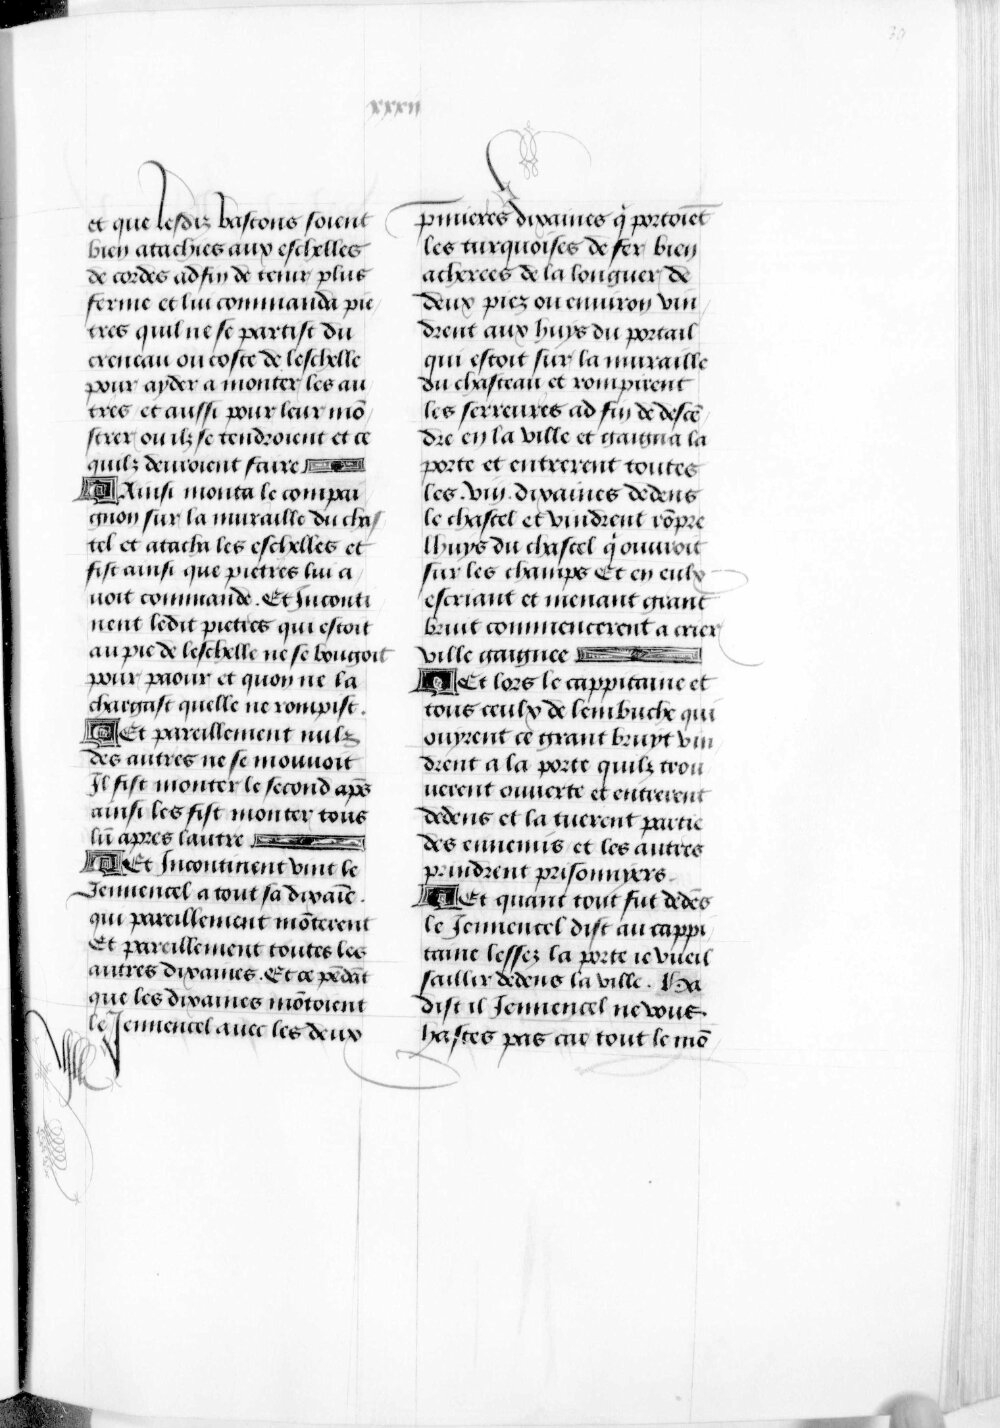 30
xxxii
et que lesdiz bastons soient
bien atachies aux eschelles
de cordes ad fin de tenir plus
ferme et lui commanda pie
tres quil ne se partist du
creneau ou coste de leschelle
pour ayder a monter les au
tres et aussi pour leur mo᷃
strer ou ilz se tendroient et ce
quilz deuroient faire
Ainsi monta le compai
gnon sur la muraille du chas
tel et atacha les eschelles et
fist ainsi que pietres lui a
uoit commande. Et Inconti
nent ledit pietres qui estoit
au pie de leschelle ne se bougoit
pour paour et quon ne la
chargast quelle ne rompist.
Et pareillement nulz
des autres ne se mouuoit
Il fist monter le second aps̄
ainsi les fist monter tous
lū apres lautre
Et Incontinent vint le
Jennencel a tout sa dixaīe.
qui pareillement mōterent
Et pareillement toutes les
autres dixaines. Et ce pēdāt
que les dixaines mōtoient
le Jennencel auec les deux
pmieres dixaines q̄ portoiēt
les turquoises de fer bien
acherees de la longuer de
deux piez ou enuiron vin
drent aux huys du portail
qui estoit sur la muraille
du chasteau et rompirent
les serreures ad fin de descē
dre en la ville et gaigna la
porte et entrerent toutes
les .viij. dixaines dedens
le chastel et vindrent rōpre
lhuys du chastel q̄ ouuroit
sur les champs Et en eulx
escriant et menant grant
bruit commencerent a crier
ville gaignee
Et lors le cappitaine et
tous ceulx de lembuche qui
ouyrent ce grant bruyt vin
drent a la porte quilz trou
uerent ouuerte et entrerent
dedens et la tuerent partie
des ennemis et les autres
prindrent prisonnyers.
Et quant tout fut dedēs
le Jennencel dist au cappi
taine lessez la porte ie vueil
saillir dedens la ville. Ha
dist il Jennencel ne vous
hastes pas car tout le mō